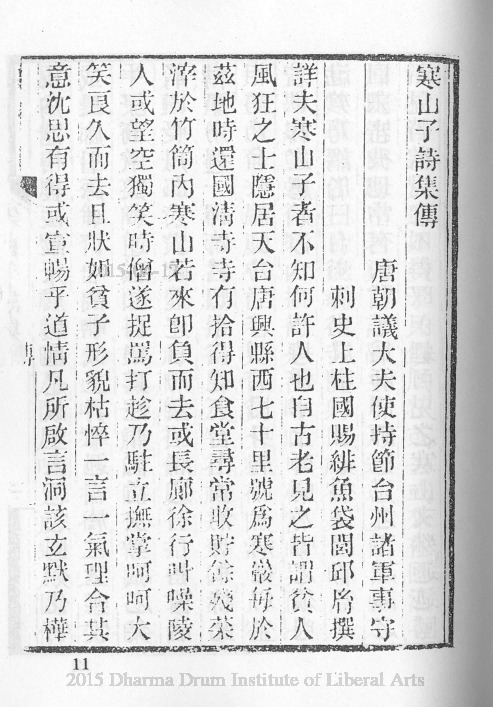 寒山子詩集傳
唐朝議大夫使持節台州諸軍事守
刺史上柱國賜緋魚袋閭邱胤撰
詳夫寒山子者不知何許人也自古老見之皆謂貧人
風狂之士隱居天台唐興縣西七十里號爲寒巖每於
茲地時還國清寺寺有拾得知食堂尋常收貯餘殘菜
滓於竹筒內寒山若來卽負而去或長廊徐行叫噪陵
人或望空獨笑時僧遂捉罵打趁乃駐立撫掌呵呵大
笑良久而去且狀如貧子形貌枯悴一言一氣理合其
意沈思有得或宣暢乎道情凡所啟言洞該玄默乃樺
傳
11
2015 Dharma Drum Institute of Liberal Arts